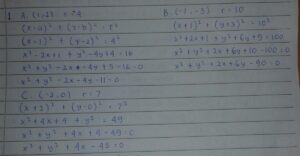 1 A. (1,2) r = 4
(x-a)² + (y-b)² = r²
(x-1)² + (y-2)² = 4²
x² - 2x + 1 + y² - 4y + 4 = 16
x² + y² - 2x - 4y + 5 - 16 = 0
x² + y² - 2x - 4y - 11 = 0
C. (-2,0) r = 7
(x+2)² + (y-0)² = 7²
x² + 4x + 4 + y² = 49
x² + y² + 4x + 4 - 49 = 0
x² + y² + 4x - 45 = 0
B. (-1,-3) r = 10
(x+1)² + (y+3)² = 10²
x² + 2x + 1 + y² + 6y + 9 = 100
x² + y² + 2x + 6y + 10 - 100 = 0
x² + y² + 2x + 6y - 90 = 0